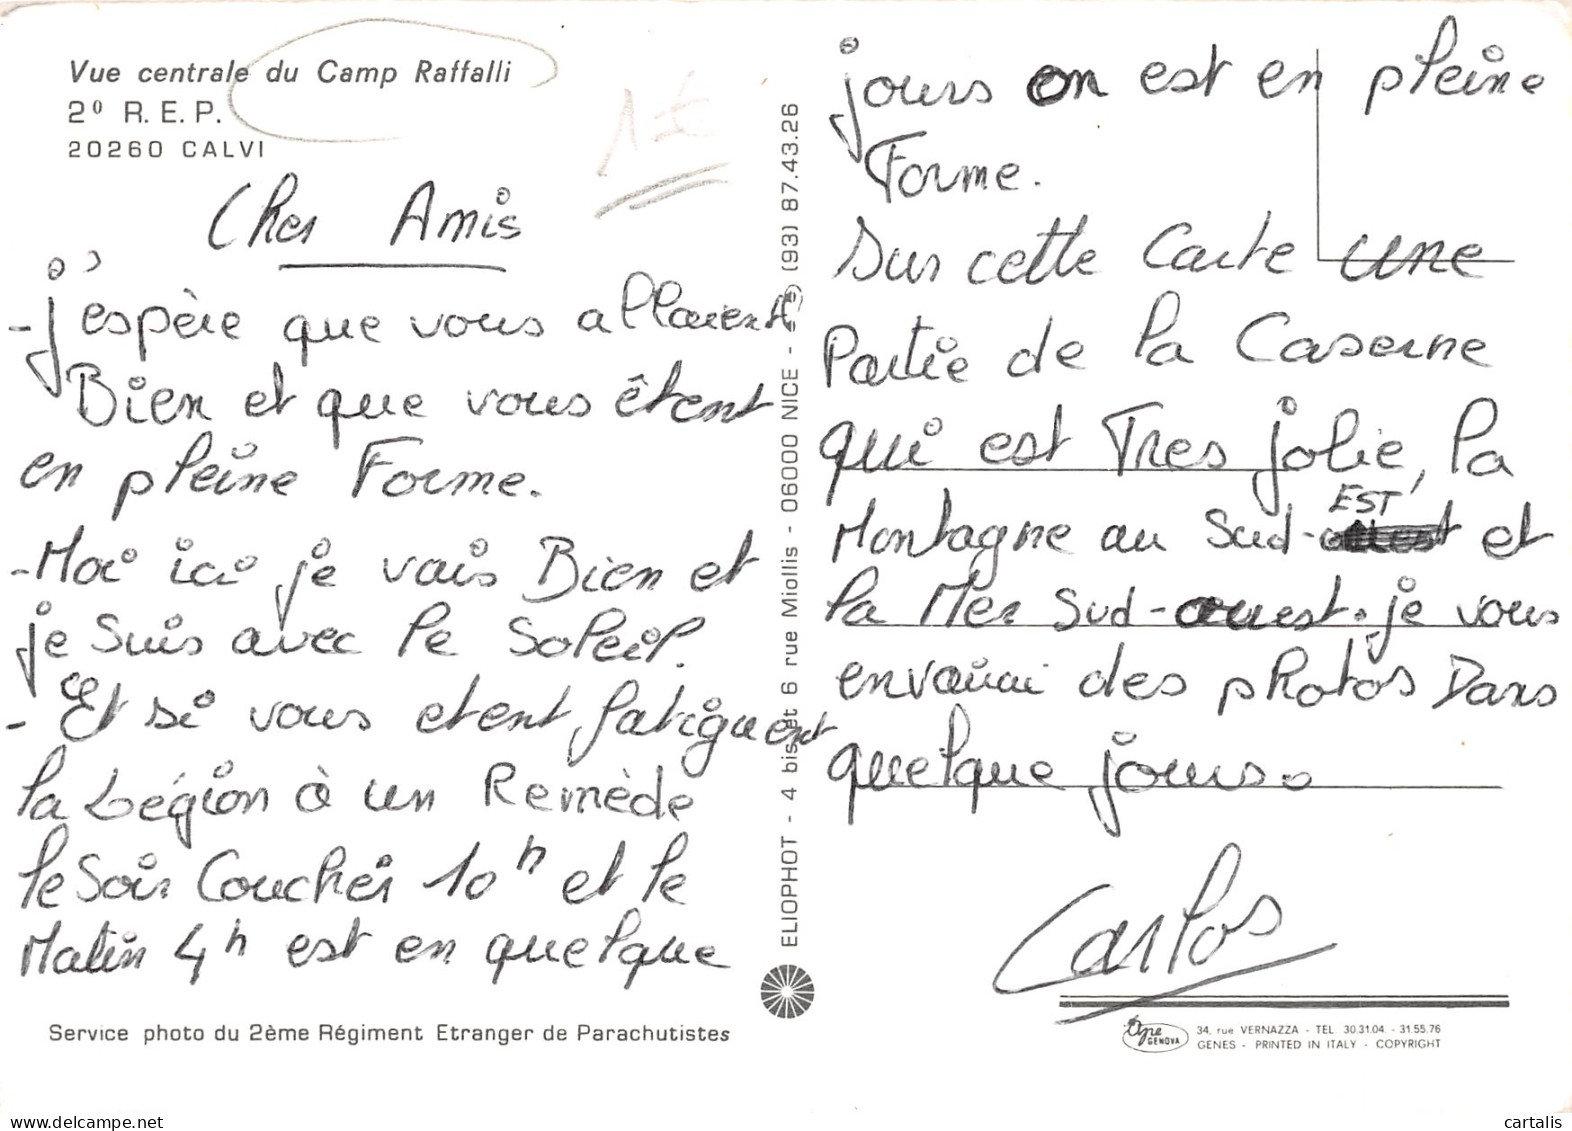 Vue centrale du Camp Raffalli
2º R. E. P.
20260 CALVI
1€
Cher Amis
- j'espère que vous allaient
Bien et que vous êtent
en pleine Forme.
- Moi ici je vais Bien et
je Suis avec le Soleil.
- Et si vous etent fatiguent
la Légion à un Remède
le Soir Coucher 10h et le
Matin 4h est en quelque
Service photo du 2ème Régiment Etranger de Parachutistes
ELIOPHOT - 4 bis et 6 rue Miollis - 06000 NICE - (93) 87.43.26
jours on est en pleine
Forme.
Sur cette Carte une
Partie de la Caserne
qui est Tres jolie, la
Montagne au Sud-EST et
la Mer Sud-ouest. je vous
envaiai des photos Dans
quelque jours.
Carlos
GENOVA
34, rue VERNAZZA - TEL 30.31.04. - 31.55.76
GENES - PRINTED IN ITALY - COPYRIGHT
cartalis